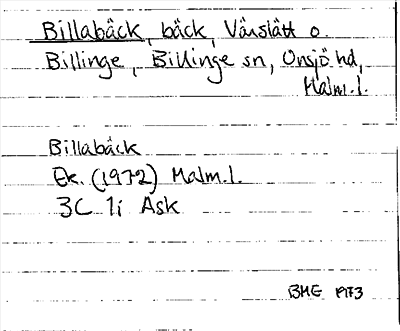 Billabäck, bäck, Vänslätt o.
Billinge, Billinge sn, Onsjö hd,
Malm. l.
Billabäck
Ek. (1972) Malm. l.
3C 1i Ask
BHE 1973